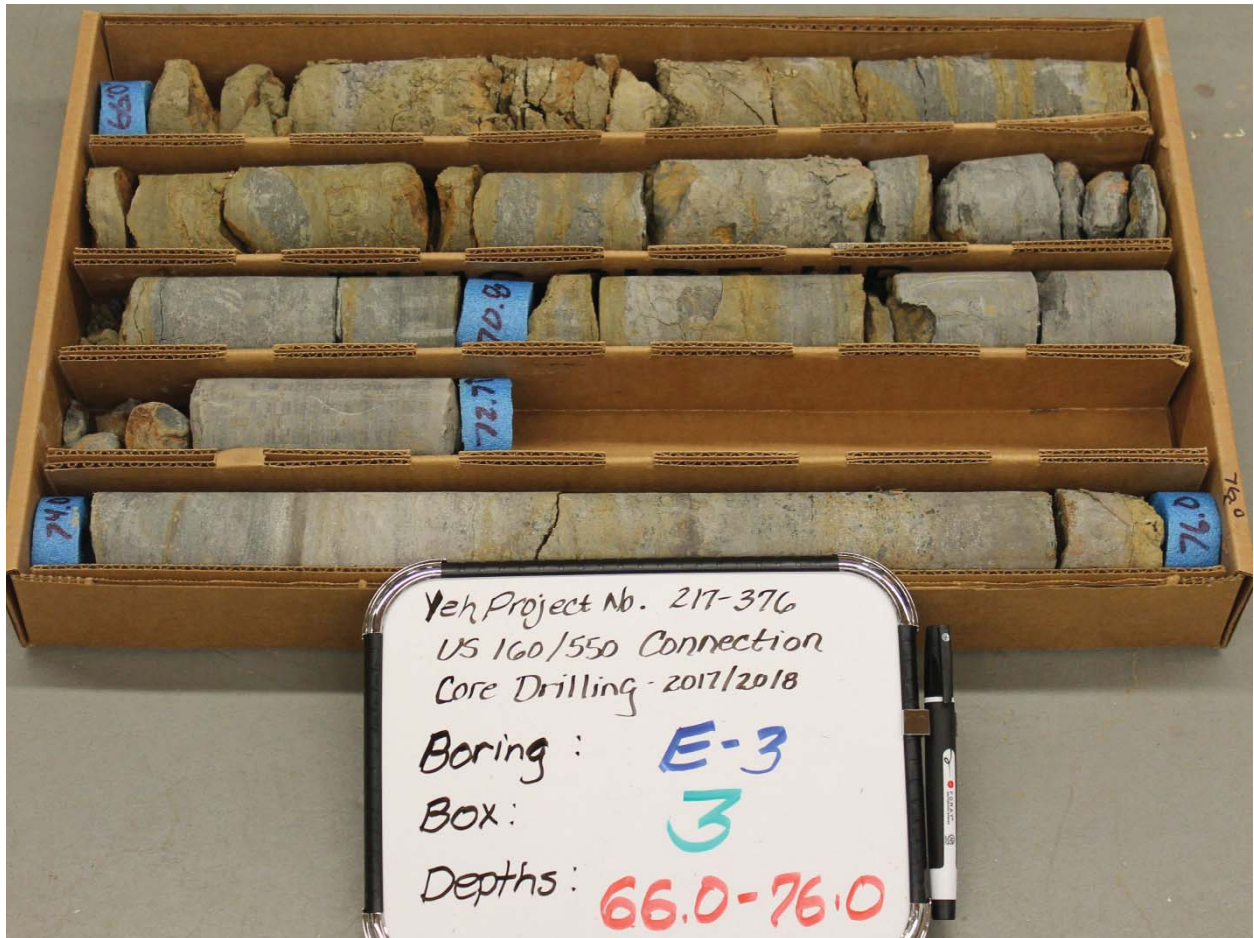 66.0
70.8
72.7
74.0
76.0
76.0
Yeh Project No. 217-376
US 160/550 Connection
Core Drilling - 2017/2018
Boring: E-3
Box: 3
Depths: 66.0-76.0